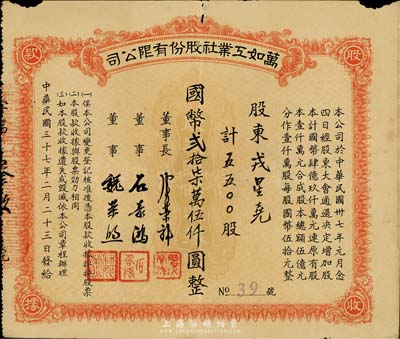 萬如工業社股份有限公司
股款收據
本公司於中華民國卅七年元月念
四日經股東大會通過決定增加股
本計國幣肆億玖仟萬元連原有股
本壹仟萬元合成股本總額伍億元
分作壹仟萬股每股國幣伍拾元整
股東戎星堯
計五五〇〇股
國幣貳拾柒萬伍仟圓整
董事長
董事石
董事魏
(一)俟本公司變更登記核准後憑本股款收據掉換股票
(二)本股款收據與股票効力相同
(三)如本股款收據遺失或毀滅依本公司章程辦理
中華民國三十七年二月二十三日發給
No 39 號
上海陽明拍賣